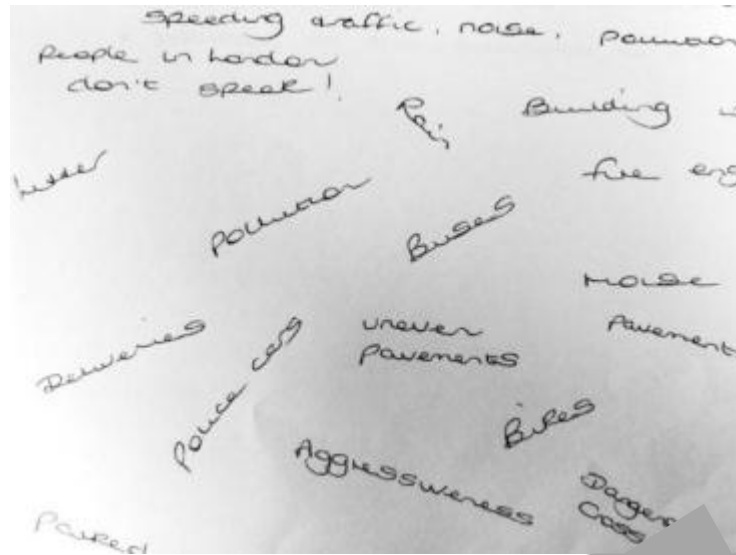 speeding traffic, noise, pollution
People in London
don't speak!
Rain
Building
Litter
fire
Pollution
Buses
Noise
Deliveries
Police cars
uneven
pavements
Pavement
Bikes
Aggressiveness
Parked